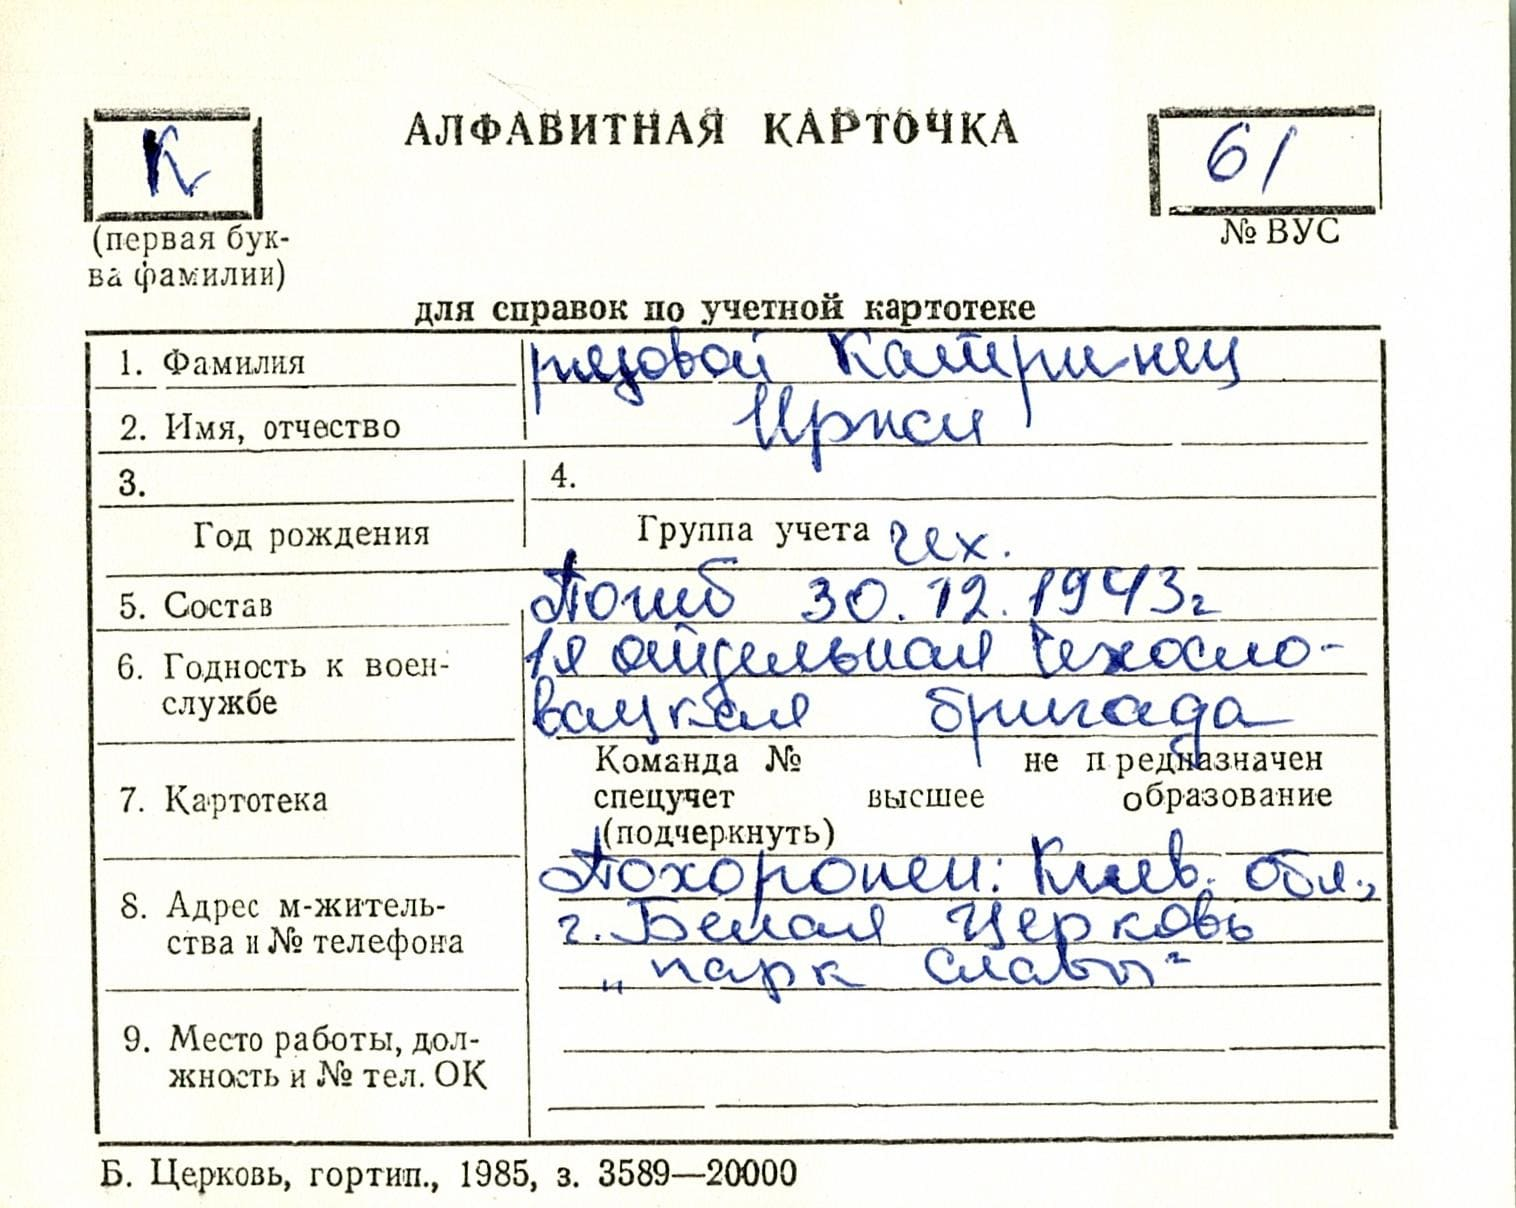 К
АЛФАВИТНАЯ КАРТОЧКА
61
(первая бук-
ва фамилии)
№ ВУС
для справок по учетной картотеке
1. Фамилия рядовой Катринец
2. Имя, отчество Иржи
3. 4.
Год рождения Группа учета чех.
5. Состав Погиб 30.12.1943г
6. Годность к воен- 1я отдельная Чехосло-
службе вацкая бригада
Команда № не предназначен
7. Картотека спецучет высшее образование
(подчеркнуть)
Похоронен: Киев. обл.,
8. Адрес м-житель- г. Белая Церковь
ства и № телефона „парк Славы"
9. Место работы, дол-
жность и № тел. ОК
Б. Церковь, гортип., 1985, з. 3589—20000